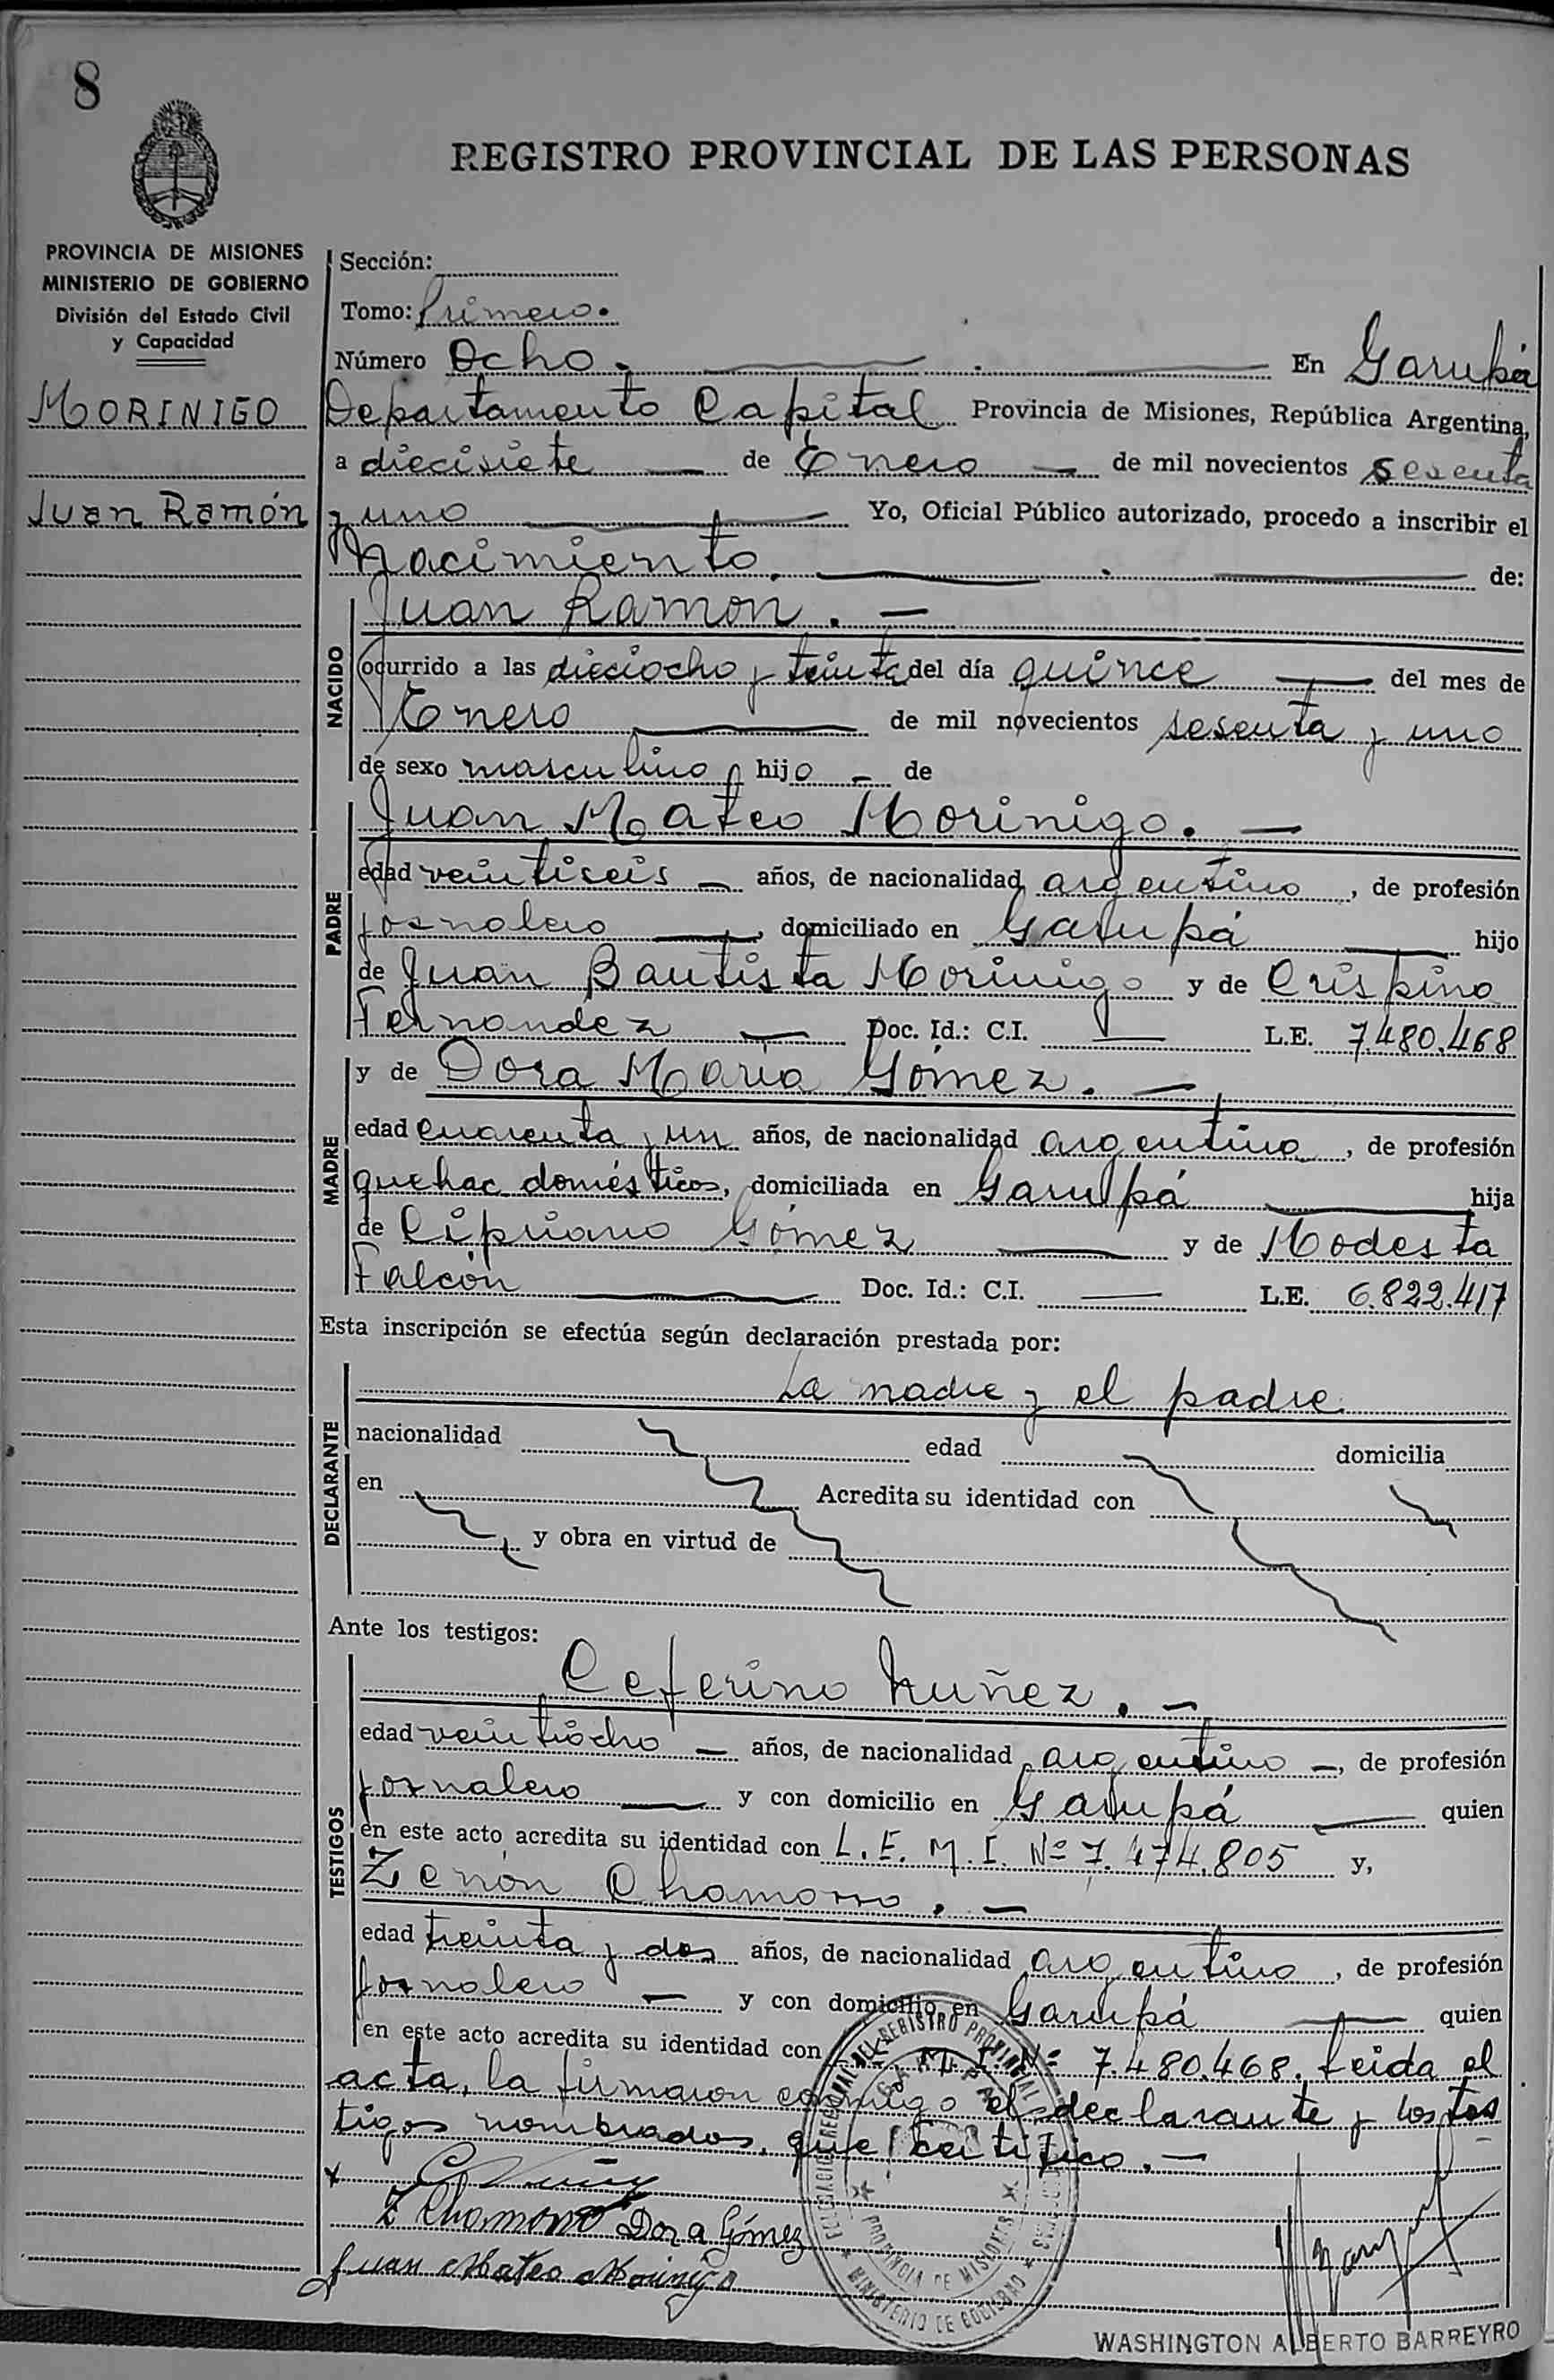 8
REGISTRO PROVINCIAL DE LAS PERSONAS
PROVINCIA DE MISIONES
MINISTERIO DE GOBIERNO
División del Estado Civil
y Capacidad
MORINIGO
Juan Ramón
Sección:
Tomo: Primero.
Número Ocho. En Garupá
Departamento Capital Provincia de Misiones, República Argentina,
a diecisiete de Enero de mil novecientos sesenta
y uno Yo, Oficial Público autorizado, procedo a inscribir el
Nacimiento. de:
NACIDO
Juan Ramon. —
ocurrido a las dieciocho y treinta del día quince del mes de
Enero de mil novecientos sesenta y uno
de sexo masculino hijo — de
PADRE
Juan Mateo Morinigo. —
edad veintiseis — años, de nacionalidad argentino, de profesión
jornalero, domiciliado en Garupá hijo
de Juan Bautista Morinigo y de Crispina
Fernandez — Doc. Id.: C.I. — L.E. 7.480.468
MADRE
y de Dora Maria Gómez. —
edad cuarenta y un años, de nacionalidad argentina, de profesión
quehac. domésticos, domiciliada en Garupá hija
de Cipriano Gómez y de Modesta
Falcón Doc. Id.: C.I. — L.E. 6.822.417
Esta inscripción se efectúa según declaración prestada por:
DECLARANTE
La madre y el padre
nacionalidad edad domicilia
en Acredita su identidad con
y obra en virtud de
Ante los testigos:
TESTIGOS
Ceferino Nuñez. —
edad veintiocho — años, de nacionalidad argentino —, de profesión
jornalero — y con domicilio en Garupá — quien
en este acto acredita su identidad con L.E. M.I. Nº 7.474.805 y,
Zenón Chamorro. —
edad treinta y dos años, de nacionalidad argentino, de profesión
jornalero — y con domicilio en Garupá — quien
en este acto acredita su identidad con Nº 7.480.468. Leida el
acta, la firmaron conmigo el declarante y los tes
tigos nombrados, que certifico. —
Z Chamorro Dora Gómez
Juan Mateo Morinigo
PROVINCIA DE MISIONES
MINISTERIO DE GOBIERNO
WASHINGTON ALBERTO BARREYRO